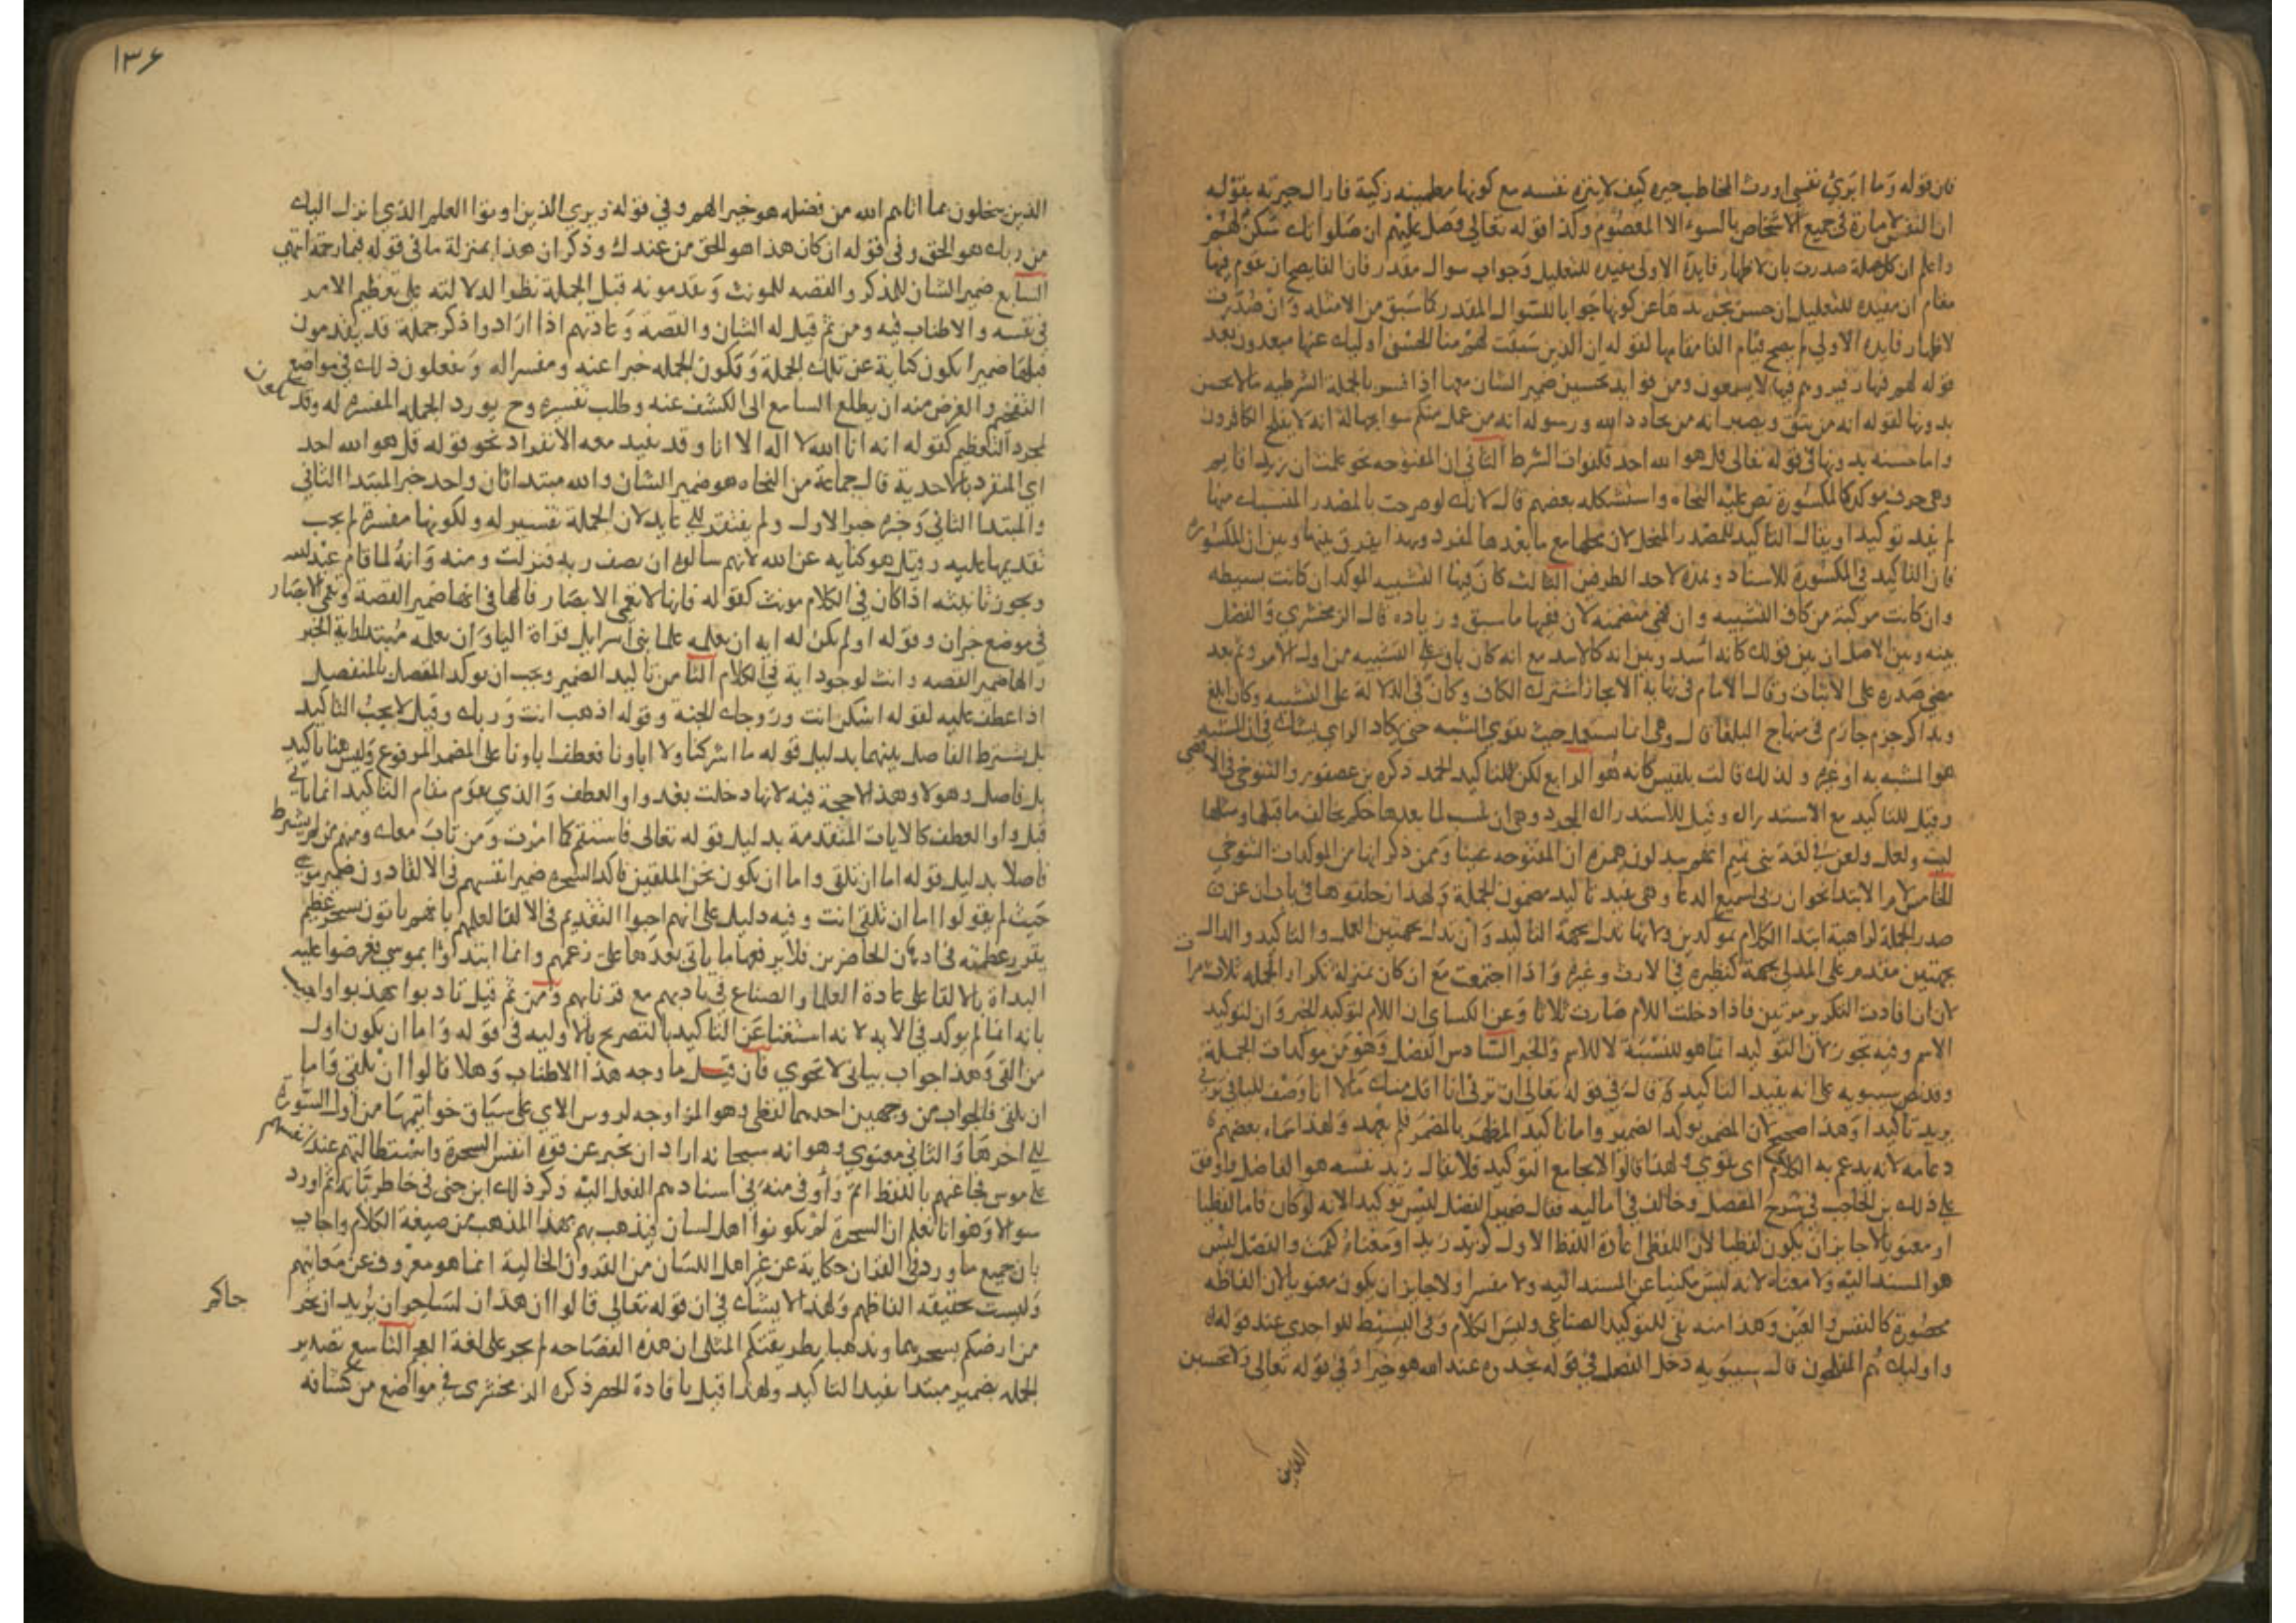 فان قوله وما ابري نفسي اورث المخاطب حيرة كيف لا ينزه نفسه مع كونها مطمينه زكية فازال حيرته بقوله
ان النفس لامارة في جميع الاشخاص بالسوء الا المعصوم وكذا قوله تعالي وصل عليهم ان صلواتك سكن لهم
واعلم ان كل جملة صدرت بان لاظهار فايدة الاولي مفيده للتعليل وجواب سوال مقدر فان الفا يصح ان تقوم فيها
مقام ان مفيده للتعليل ان حسن تجريدها عن كونها جوابا للسوال المقدر كما سبق من الامثله وان صدرت
لاظهار فايدة الاولي لم يصح قيام الفا مقامها لقوله ان الذين سبقت لهم منا الحسنى اوليك عنها مبعدون بعد
قوله لهم فيها زفير وهم فيها لا يسمعون ومن فوايد تحسين ضمير الشان معها اذا فسر بالجملة الشرطيه ما لا يحسن
بدونها لقوله انه من يتق ويصبر انه من يحادد الله ورسوله انه من عمل منكم سوا بجهالة انه لا يفلح الكافرون
واما حسنه بدونها في قوله تعالي قل هو الله احد فلفوات الشرط الثاني ان المفتوحه نحو علمت ان زيدا قايم
وهي حرف موكد كالمكسورة نص عليه النحاه واستشكله بعضهم قال لانك لو صرحت بالمصدر المنسبك منها
لم يفد توكيدا ويقال التاكيد للمصدر المنحل لان محلها مع ما بعدها المفرد وبهذا يفرق بينها وبين ان المكسورة
فان التاكيد في المكسورة للاسناد وهذه لاحد الطرفين الثالث كان فيها التشبيه الموكد ان كانت بسيطه
وان كانت مركبة من كاف التشبيه وان فهي متضمنه لان فيها ما سبق وزياده قال الزمخشري والفصل
بينه وبين الاصل ان بين قولك كانه اسد وبين انه كالاسد مع انه كان بان على التشبيه من اول الامر وثم بعد
مضي صدره على الاثبات وقال الامام في نهاية الايجاز اشترك الكاف وكان في الدلالة على التشبيه وكان ابلغ
وبذاكر جزم حازم في منهاج البلغا قال وهي انما تستعمل حيث يقوي الشبه حتى يكاد الراي يشك في ان المشبه
هو المشبه به او غيره ولذلك قالت بلقيس كانه هو الرابع لكن للتاكيد الجمد ذكره بن عصفور والتنوخي في الاقصي
وقيل للتاكيد مع الاستدراك وقيل للاستدراك المجرد وهي ان تنسب لما بعدها حكم يخالف ما قبلها ومثلها
ليت ولعل ولعن في لغة بني تميم انهم يبدلون همزة ان المفتوحه عينا وممن ذكر انها من الموكدات التنوخي
الخامس لام الابتدا نحو ان ربي لسميع الدعا وهي تفيد تاكيد مضمون الجملة ولهذا زحلقوها في باب ان عن
صدر الجملة كراهية ابتدا الكلام بموكدين ولانها تدل بجهة التاكيد وان تدل بجهتين العمل والتاكيد والدال
بجهتين مقدم على الدال بجهة كنظيره في الارث وغيره واذا اجتمعت مع ان كان بمنزلة تكرار الجمله ثلاث مرات
لان ان افادت التكرير مرتين فاذا دخلت اللام صارت ثلاثا وعن الكساي ان اللام لتوكيد الخبر وان لتوكيد
الاسم وفيه تجوز لان التوكيد انما هو للنسبة لا للاسم والخبر السادس الفصل وهو من موكدات الجملة
وقد نص سيبويه على انه يفيد التاكيد وقال في قوله تعالى ان ترني انا اقل منك مالا انا وصف لليا في ترني
يريد تاكيدا وهذا صحيح لان المضمر يوكد الضمير واما تاكيد المظهر بالمضمر فلم يعهد ولهذا سماه بعضهم
دعامه لانه يدعم به الكلام اي يقوي ولهذا قالوا لا يجامع التوكيد فلا يقال زيد نفسه هو الفاضل ووافق
على ذلك بن الحاجب في شرح المفصل وخالف في اماليه فقال ضمير الفصل ليس توكيدا لانه لو كان فاما لفظيا
او معنويا لا جايز ان يكون لفظيا لان اللفظي اعادة اللفظ الاول كزيد زيد او معناه كقمت والفصل ليس
هو المسند اليه ولا معناه لانه ليس مكنيا عن المسند اليه ولا مفسرا ولا جايز ان يكون معنويا لان الفاظه
محصورة كالنفس والعين وهذا منه نفي للتوكيد الصناعي وليس الكلام وفي البسيط للواحدي عند قوله
واوليك هم المفلحون قال سيبويه دخل الفصل في قوله تجدوه عند الله هو خيرا وفي قوله تعالى ولا تحسبن
الذين
١٣٦
الذين يبخلون بما اتاهم الله من فضله هو خيرا لهم وفي قوله ويري الذين اوتوا العلم الذي انزل اليك
من ربك هو الحق وفي قوله ان كان هذا هو الحق من عندك وذكر ان هذا بمنزلة ما في قوله فبما رحمة انتهي
السابع ضمير الشان للمذكر والقصه للمونث ويقدمونه قبل الجملة نظرا لدلالته على تعظيم الامر
في نفسه والاطناب فيه ومن ثم قيل له الشان والقصة وعادتهم اذا ارادوا ذكر جملة قد يقدمون
قبلها ضميرا يكون كناية عن تلك الجملة وتكون الجمله خبرا عنه ومفسرا له ويفعلون ذلك في مواضع
التفخيم والغرض منه ان يطلع السامع الى الكشف عنه وطلب تفسيره وح يورد الجمله المفسره له وقد يكون
لمجرد التعظيم كقوله انه انا الله لا اله الا انا وقد يفيد معه الانفراد نحو قوله قل هو الله احد
اي المنفرد بالاحدية قال جماعة من النحاه هو ضمير الشان والله مبتدا ثان واحد خبر المبتدا الثاني
والمبتدا الثاني وخبره خبر الاول ولم يفتقر الى عايد لان الجملة تفسير له ولكونها مفسرة لم يجب
تقديمها عليه وقيل هو كنايه عن الله لانهم سالوه ان يصف ربه فنزلت ومنه وانه لما قام عبد الله
ويجوز تانيثه اذا كان في الكلام مونث كقوله فانها لا تعمى الابصار فالها في انها ضمير القصة وتعمى الابصار
في موضع خبر ان وقوله اولم يكن له اية ان يعلمه علما بني اسرايل بقراة اليا وان يعلمه مبتدا واية الخبر
والها ضمير القصه وانث لوجود اية في الكلام الثامن تاكيد الضمير ويجب ان يوكد المتصل بالمنفصل
اذا عطف عليه لقوله اسكن انت وزوجك الجنة وقوله اذهب انت وربك وقيل لا يجب التاكيد
بل يشترط الفاصل بينهما بدليل قوله ما اشركنا ولا اباونا فعطف اباونا على المضمر المرفوع وليس هنا تاكيد
بل فاصل وهو لا وهذا لا حجة فيه لانها دخلت بعد واو العطف والذي يقوم مقام التاكيد انما ياتي
قبل واو العطف كالايات المتقدمة بدليل قوله تعالى فاستقم كما امرت ومن تاب معك ومنهم من لم يشترط
فاصلا بدليل قوله اما ان تلقي واما ان نكون نحن الملقين فاكد السحره ضمير انفسهم في الالقا دون ضمير موسى
حيث لم يقولوا اما ان تلقي انت وفيه دليل على انهم احبوا التقديم في الالقا لعلمهم بانهم ياتون بسحر عظيم
يقرر عظمته في اذهان الحاضرين فلا يرفعها ما ياتي بعدها على زعمهم وانما ابتداوا بموسى فعرضوا عليه
البداة بالالقا على عادة العلما والصناع في تاديبهم مع قرنايهم ومن ثم قيل تادبوا تهذبوا واجيب
بانه انما لم يوكد في الاية لانه استغنا عن التاكيد بالتصريح بالاوليه في قوله واما ان نكون اول
من القى وهذا جواب بياني لا نحوي فان قيل ما وجه هذا الاطناب وهلا قالوا ان تلقي واما
ان نلقي فالجواب من وجهين احدهما لفظي وهو المزاوجه لروس الاي على سياق خواتيمها من اول السورة
الى اخرها والثاني معنوي وهو انه سبحانه اراد ان يخبر عن قوة انفس السحرة واستطالتهم عند انفسهم
على موسى فجا عنهم باللفظ اتم واوفى منه في اسنادهم الفعل اليه ذكر ذلك ابن جني في خاطرياته ثم اورد
سوالا وهو انا نعلم ان السحرة لم يكونوا اهل لسان فيذهب بهم هذا المذهب من صيغة الكلام واجاب
بان جميع ما ورد في القران حكاية عن غير اهل اللسان من القرون الخالية انما هو معروف عن معانيهم
وليست بحقيقه الفاظهم ولهذا لا يشك في ان قوله تعالى قالوا ان هذان لساحران يريدان يخرجاكم
من ارضكم بسحرهما ويذهبا بطريقتكم المثلى ان هذه الفصاحه لم تجر على لغة العجم التاسع تصدير
الجمله بضمير مبتدا يفيد التاكيد ولهذا قيل بافادة الحصر ذكره الزمخشري في مواضع من كشافه